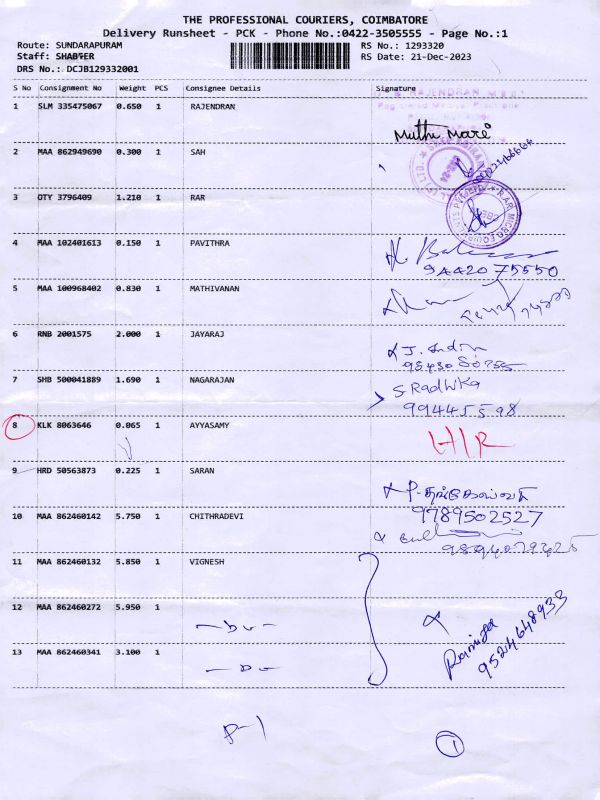 THE PROFESSIONAL COURIERS, COIMBATORE
Delivery Runsheet - PCK - Phone No.:0422-3505555 - Page No.:1
Route: SUNDARAPURAM RS No.: 1293320
Staff: SHABEER RS Date: 21-Dec-2023
DRS No.: DCJB129332001
S No Consignment No Weight PCS Consignee Details Signature
1 SLM 335475067 0.650 1 RAJENDRAN
Muthu Mari
2 MAA 862949690 0.300 1 SAH
3 OTY 3796409 1.210 1 RAR
4 MAA 102401613 0.150 1 PAVITHRA
94420 75550
5 MAA 100968402 0.830 1 MATHIVANAN
6 RNB 2001575 2.000 1 JAYARAJ
7 SHB 500041889 1.690 1 NAGARAJAN S Radhika
99445 5
8 KLK 8063646 0.065 1 AYYASAMY
9 HRD 50563873 0.225 1 SARAN
10 MAA 862460142 5.750 1 CHITHRADEVI 9789502527
11 MAA 862460132 5.850 1 VIGNESH
12 MAA 862460272 5.950 1
13 MAA 862460341 3.100 1
9524648933
P-1
1